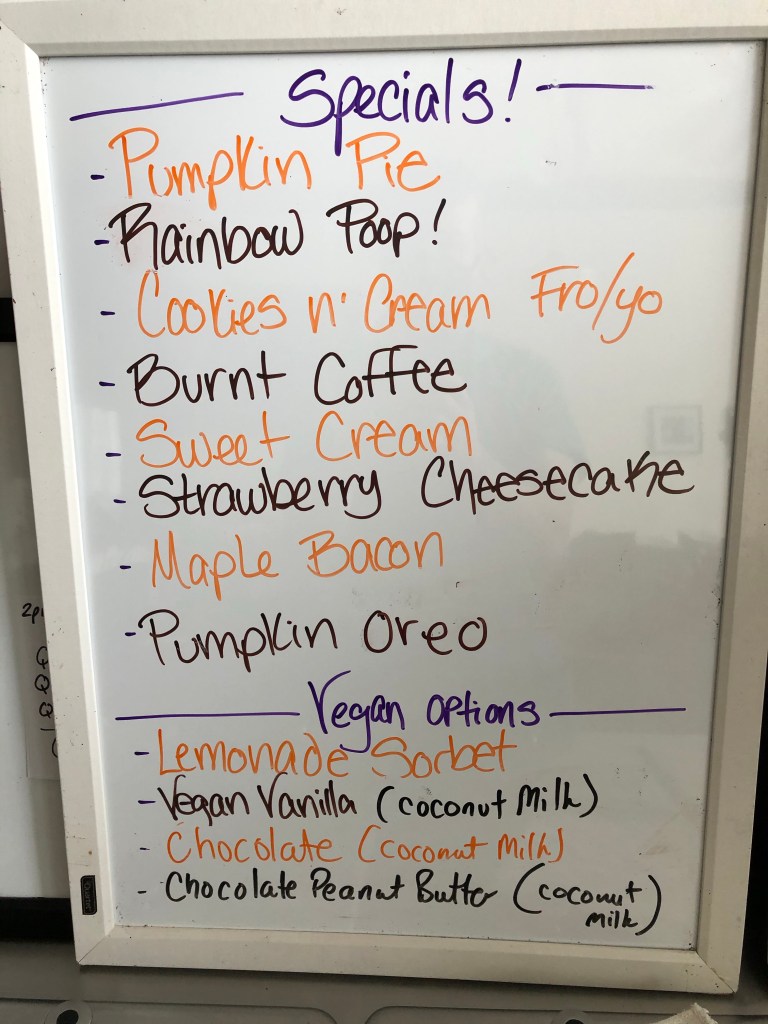 Specials!
- Pumpkin Pie
- Rainbow Poop!
- Cookies n' Cream Fro/yo
- Burnt Coffee
- Sweet Cream
- Strawberry Cheesecake
- Maple Bacon
- Pumpkin Oreo
Vegan Options
- Lemonade Sorbet
- Vegan Vanilla (coconut Milk)
- Chocolate (coconut Milk)
- Chocolate Peanut Butter (coconut
milk)
Quartet